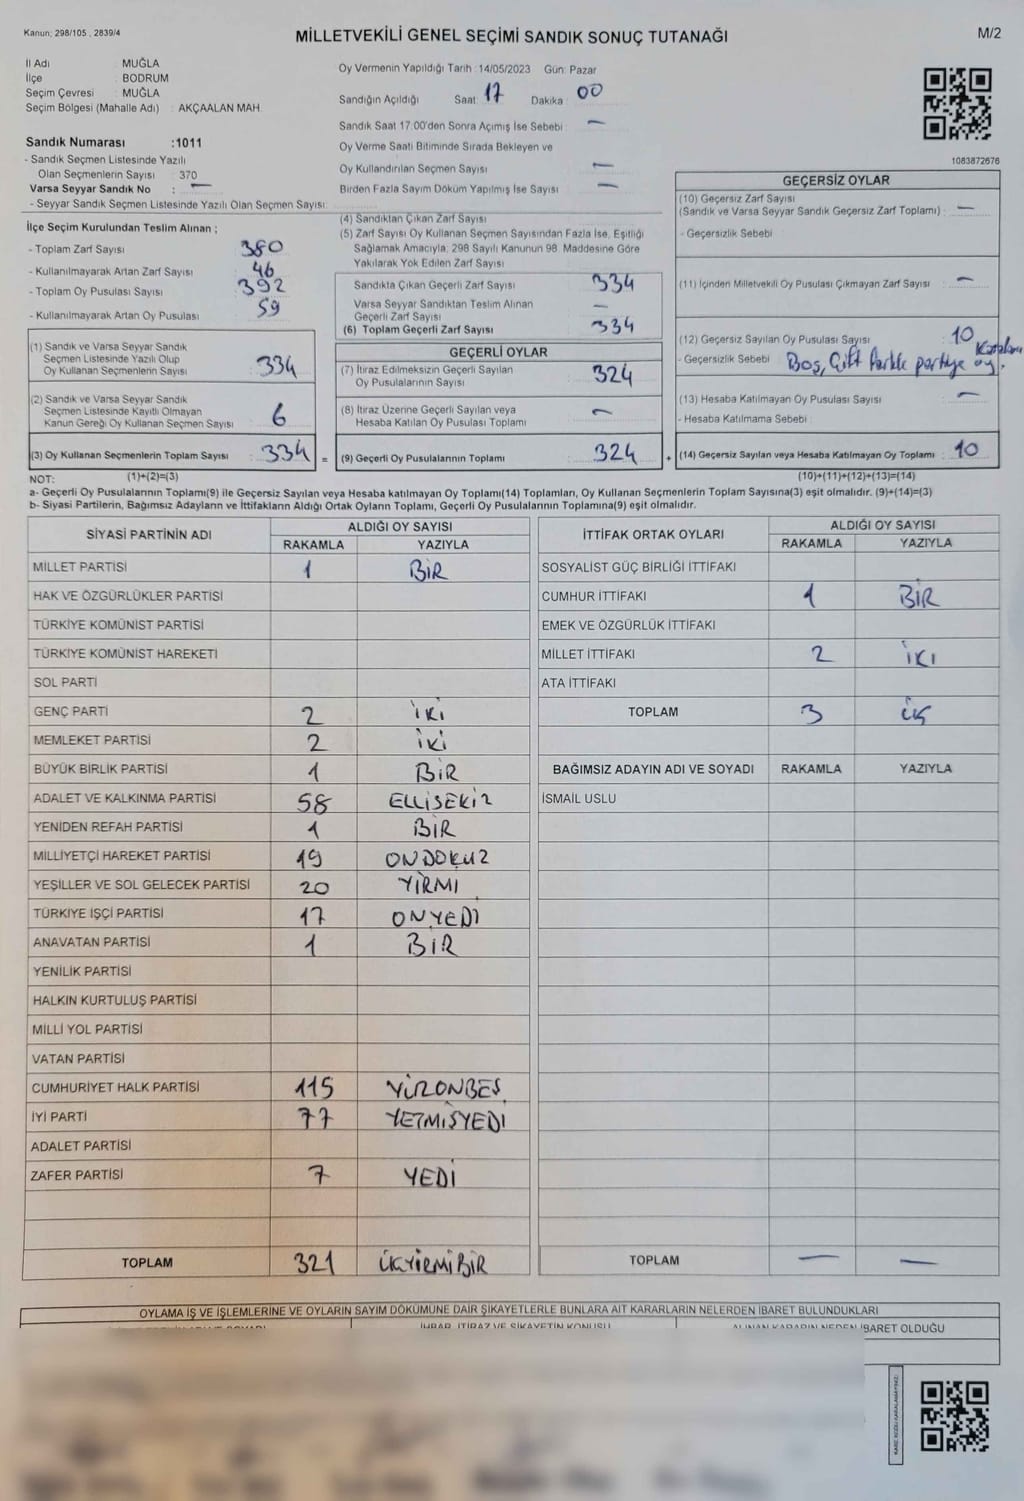 Kanun; 298/105 , 2839/4
MİLLETVEKİLİ GENEL SEÇİMİ SANDIK SONUÇ TUTANAĞI
M/2
İl Adı MUĞLA
İlçe : BODRUM
Seçim Çevresi : MUĞLA
Seçim Bölgesi (Mahalle Adı) : AKÇAALAN MAH.
Sandık Numarası :1011
- Sandık Seçmen Listesinde Yazılı
Olan Seçmenlerin Sayısı : 370
Varsa Seyyar Sandık No : —
- Seyyar Sandık Seçmen Listesinde Yazılı Olan Seçmen Sayısı:
Oy Vermenin Yapıldığı Tarih : 14/05/2023 Gün: Pazar
Sandığın Açıldığı Saat: 17 Dakika : 00
Sandık Saat 17.00'den Sonra Açımış İse Sebebi : —
Oy Verme Saati Bitiminde Sırada Bekleyen ve
Oy Kullandırılan Seçmen Sayısı : —
Birden Fazla Sayım Döküm Yapılmış İse Sayısı : —
1083872676
İlçe Seçim Kurulundan Teslim Alınan ;
- Toplam Zarf Sayısı : 380
- Kullanılmayarak Artan Zarf Sayısı : 46
- Toplam Oy Pusulası Sayısı : 392
- Kullanılmayarak Artan Oy Pusulası : 59
(1) Sandık ve Varsa Seyyar Sandık
Seçmen Listesinde Yazılı Olup
Oy Kullanan Seçmenlerin Sayısı : 334
(2) Sandık ve Varsa Seyyar Sandık
Seçmen Listesinde Kayıtlı Olmayan
Kanun Gereği Oy Kullanan Seçmen Sayısı : 6
(3) Oy Kullanan Seçmenlerin Toplam Sayısı : 334 =
(4) Sandıktan Çıkan Zarf Sayısı
(5) Zarf Sayısı Oy Kullanan Seçmen Sayısından Fazla İse, Eşitliği
Sağlamak Amacıyla; 298 Sayılı Kanunun 98. Maddesine Göre
Yakılarak Yok Edilen Zarf Sayısı
Sandıkta Çıkan Geçerli Zarf Sayısı : 334
Varsa Seyyar Sandıktan Teslim Alınan
Geçerli Zarf Sayısı : —
(6) Toplam Geçerli Zarf Sayısı : 334
GEÇERLİ OYLAR
(7) İtiraz Edilmeksizin Geçerli Sayılan
Oy Pusulalarının Sayısı : 324
(8) İtiraz Üzerine Geçerli Sayılan veya
Hesaba Katılan Oy Pusulası Toplamı : —
(9) Geçerli Oy Pusulalarının Toplamı : 324 +
GEÇERSİZ OYLAR
(10) Geçersiz Zarf Sayısı
(Sandık ve Varsa Seyyar Sandık Geçersiz Zarf Toplamı) : —
- Geçersizlik Sebebi :
(11) İçinden Milletvekili Oy Pusulası Çıkmayan Zarf Sayısı : —
(12) Geçersiz Sayılan Oy Pusulası Sayısı : 10
- Geçersizlik Sebebi : Boş, Çift farklı partiye oy.
(13) Hesaba Katılmayan Oy Pusulası Sayısı : —
- Hesaba Katılmama Sebebi :
(14) Geçersiz Sayılan veya Hesaba Katılmayan Oy Toplamı : 10
NOT: (1)+(2)=(3) (10)+(11)+(12)+(13)=(14)
a- Geçerli Oy Pusulalarının Toplamı(9) ile Geçersiz Sayılan veya Hesaba katılmayan Oy Toplamı(14) Toplamları, Oy Kullanan Seçmenlerin Toplam Sayısına(3) eşit olmalıdır. (9)+(14)=(3)
b- Siyasi Partilerin, Bağımsız Adayların ve İttifakların Aldığı Ortak Oyların Toplamı, Geçerli Oy Pusulalarının Toplamına(9) eşit olmalıdır.
SİYASİ PARTİNİN ADI ALDIĞI OY SAYISI
RAKAMLA YAZIYLA
MİLLET PARTİSİ 1 BİR
HAK VE ÖZGÜRLÜKLER PARTİSİ
TÜRKİYE KOMÜNİST PARTİSİ
TÜRKİYE KOMÜNİST HAREKETİ
SOL PARTİ
GENÇ PARTİ 2 İKİ
MEMLEKET PARTİSİ 2 İKİ
BÜYÜK BİRLİK PARTİSİ 1 BİR
ADALET VE KALKINMA PARTİSİ 58 ELLİSEKİZ
YENİDEN REFAH PARTİSİ 1 BİR
MİLLİYETÇİ HAREKET PARTİSİ 19 ONDOKUZ
YEŞİLLER VE SOL GELECEK PARTİSİ 20 YİRMİ
TÜRKİYE İŞÇİ PARTİSİ 17 ONYEDİ
ANAVATAN PARTİSİ 1 BİR
YENİLİK PARTİSİ
HALKIN KURTULUŞ PARTİSİ
MİLLİ YOL PARTİSİ
VATAN PARTİSİ
CUMHURİYET HALK PARTİSİ 115 YÜZONBEŞ
İYİ PARTİ 77 YETMİŞYEDİ
ADALET PARTİSİ
ZAFER PARTİSİ 7 YEDİ
TOPLAM 321 ÜÇYİRMİBİR
İTTİFAK ORTAK OYLARI ALDIĞI OY SAYISI
RAKAMLA YAZIYLA
SOSYALİST GÜÇ BİRLİĞİ İTTİFAKI
CUMHUR İTTİFAKI 1 BİR
EMEK VE ÖZGÜRLÜK İTTİFAKI
MİLLET İTTİFAKI 2 İKİ
ATA İTTİFAKI
TOPLAM 3 ÜÇ
BAĞIMSIZ ADAYIN ADI VE SOYADI RAKAMLA YAZIYLA
İSMAİL USLU
TOPLAM — —
OYLAMA İŞ VE İŞLEMLERİNE VE OYLARIN SAYIM DÖKÜMÜNE DAİR ŞİKAYETLERLE BUNLARA AİT KARARLARIN NELERDEN İBARET BULUNDUKLARI
İHBAR, İTİRAZ VE ŞİKAYETİN KONUSU ALINAN KARARIN NEDEN İBARET OLDUĞU